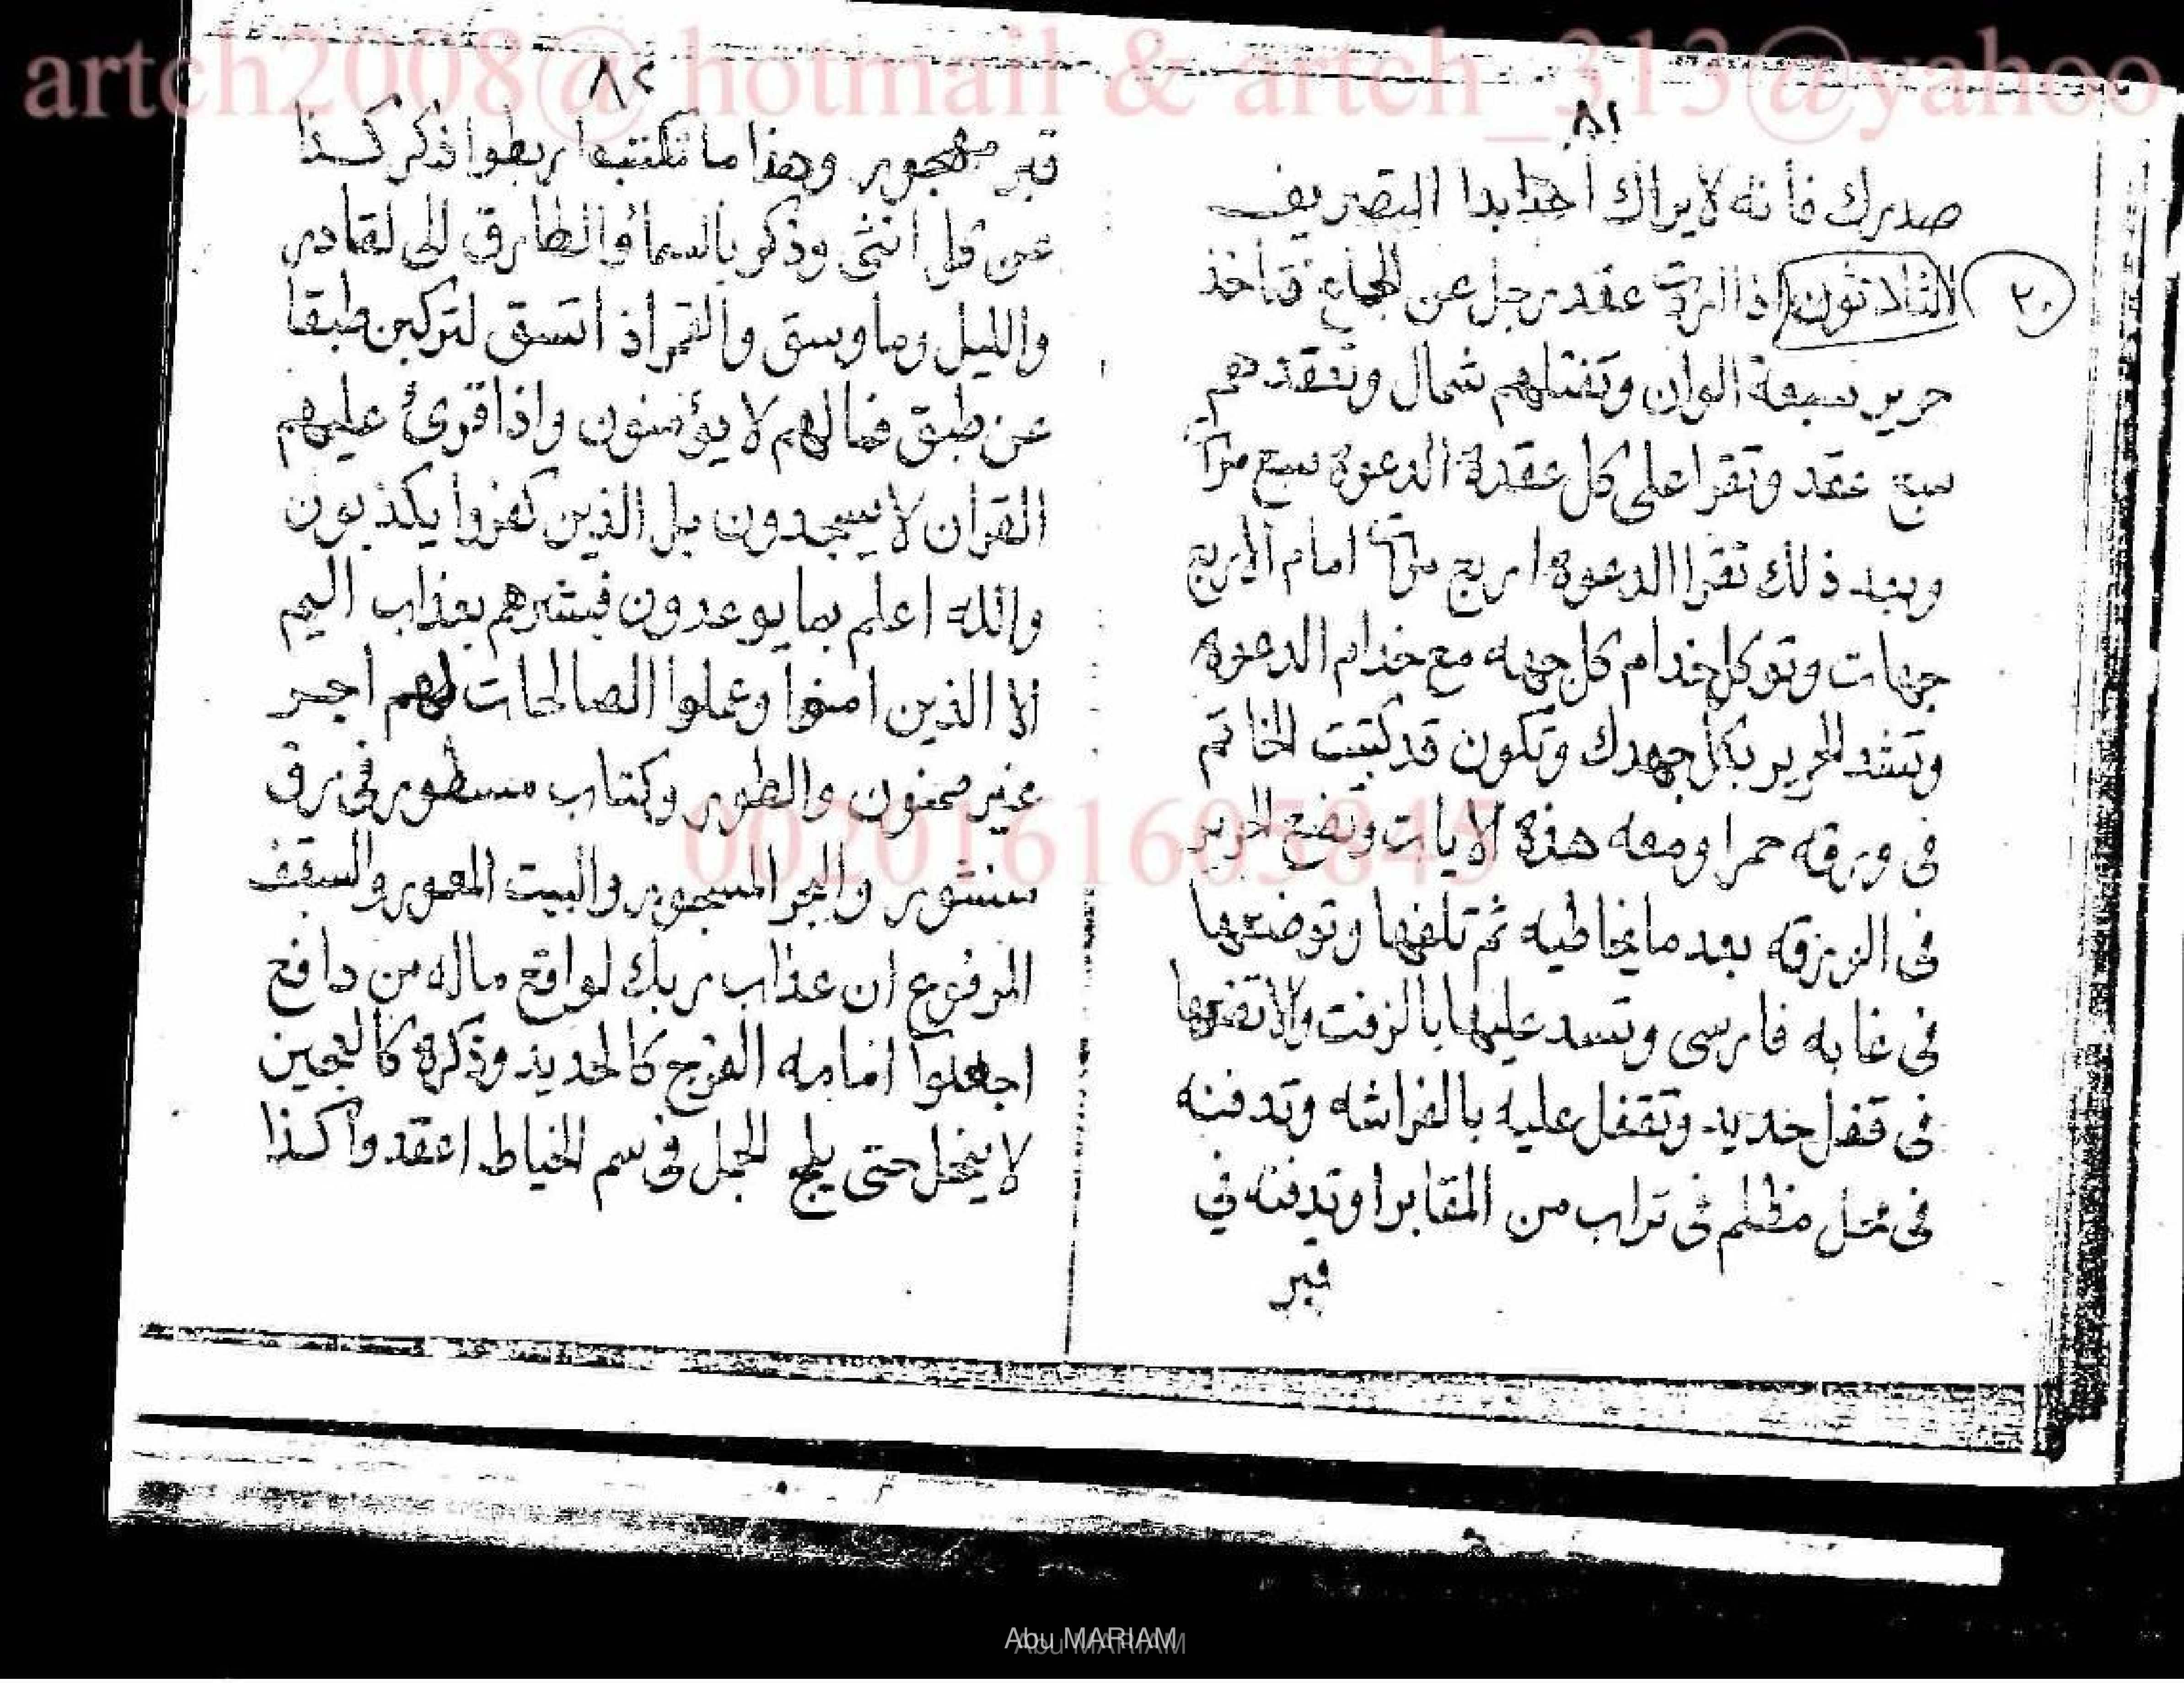 artch2008@ hotmail & artch_313@yahoo
٨١
صدرك فأنه لايراك أحدابدا التصريف
٣٠
الثلاثون اذا اردت عقد رجل عن الجماع فتأخذ
حرير سبعة الوان وتفتلهم شمال وتعقدهم
سبع عقد وتقرا على كل عقدة الدعوة سبع مرات
وبعد ذلك تقرا الدعوة اربع مرات امام الاربع
جهات وتوكل خدام كل جهه مع خدام الدعوة
وتشد الحرير بكل جهدك وتكون قد كتبت الخاتم
فى ورقه حمرا ومعه هذه الايات وتضع الحرير
فى الورقه بعد ما ثم تلفها وتوضعها
فى غابه فارسى وتسد عليها بالزفت والا تضعها
فى قفل حديد وتقفل عليه بالفراشه وتدفنه
فى محل مظلم فى تراب من المقابر او تدفنه في
قبر
٨٢
قبر مهجور وهذا ما تكتب اربطوا ذكر كذا
عن كل انثى وذكر بالسمأ والطارق الى لقادر
والليل وما وسق والقمر اذ اتسق لتركبن طبقا
عن طبق فمالهم لا يؤمنون واذا قرئ عليهم
القران لا يسجدون بل الذين كفروا يكذبون
والله اعلم بما يوعدون فبشرهم بعذاب اليم
الا الذين امنوا وعملوا الصالحات لهم اجر
غير ممنون والطور وكتاب مسطور فى رق
منشور والبحر المسجور والبيت المعمور والسقف
المرفوع ان عذاب ربك لواقع ماله من دافع
اجعلوا امامه الفرج كالحديد وذكره كالعجين
لا يدخل حتى يلج الجمل فى سم الخياط اعقدوا كذا
0020161605845
Abu MARIAM